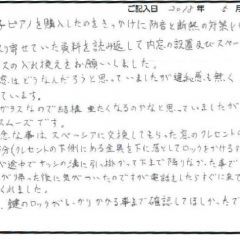 ご記入日 2018年 6月
子ピアノを購入したのをきっかけに防音と断熱の対策を
り寄せていた資料を読み返して内窓の設置及びスペー
スの入れ換えをお願いしました。
窓はどうなんだろうと思っていましたが違和感も無く
ています。
ガラスなので結構重たくなるのかなと思っていましたが
スムーズです。
念な事は スペーシアに交換してもらった窓のクレセントの
分(クレセントの下側にある金具を下に落としてロックをかける
が途中でサッシの溝に引っ掛かって下まで降りなかった事で
が帰った後に気がついたのですが電話をしたらすぐに来て
くれました。
鍵のロックがしっかりかかる事まで確認してほしかったで